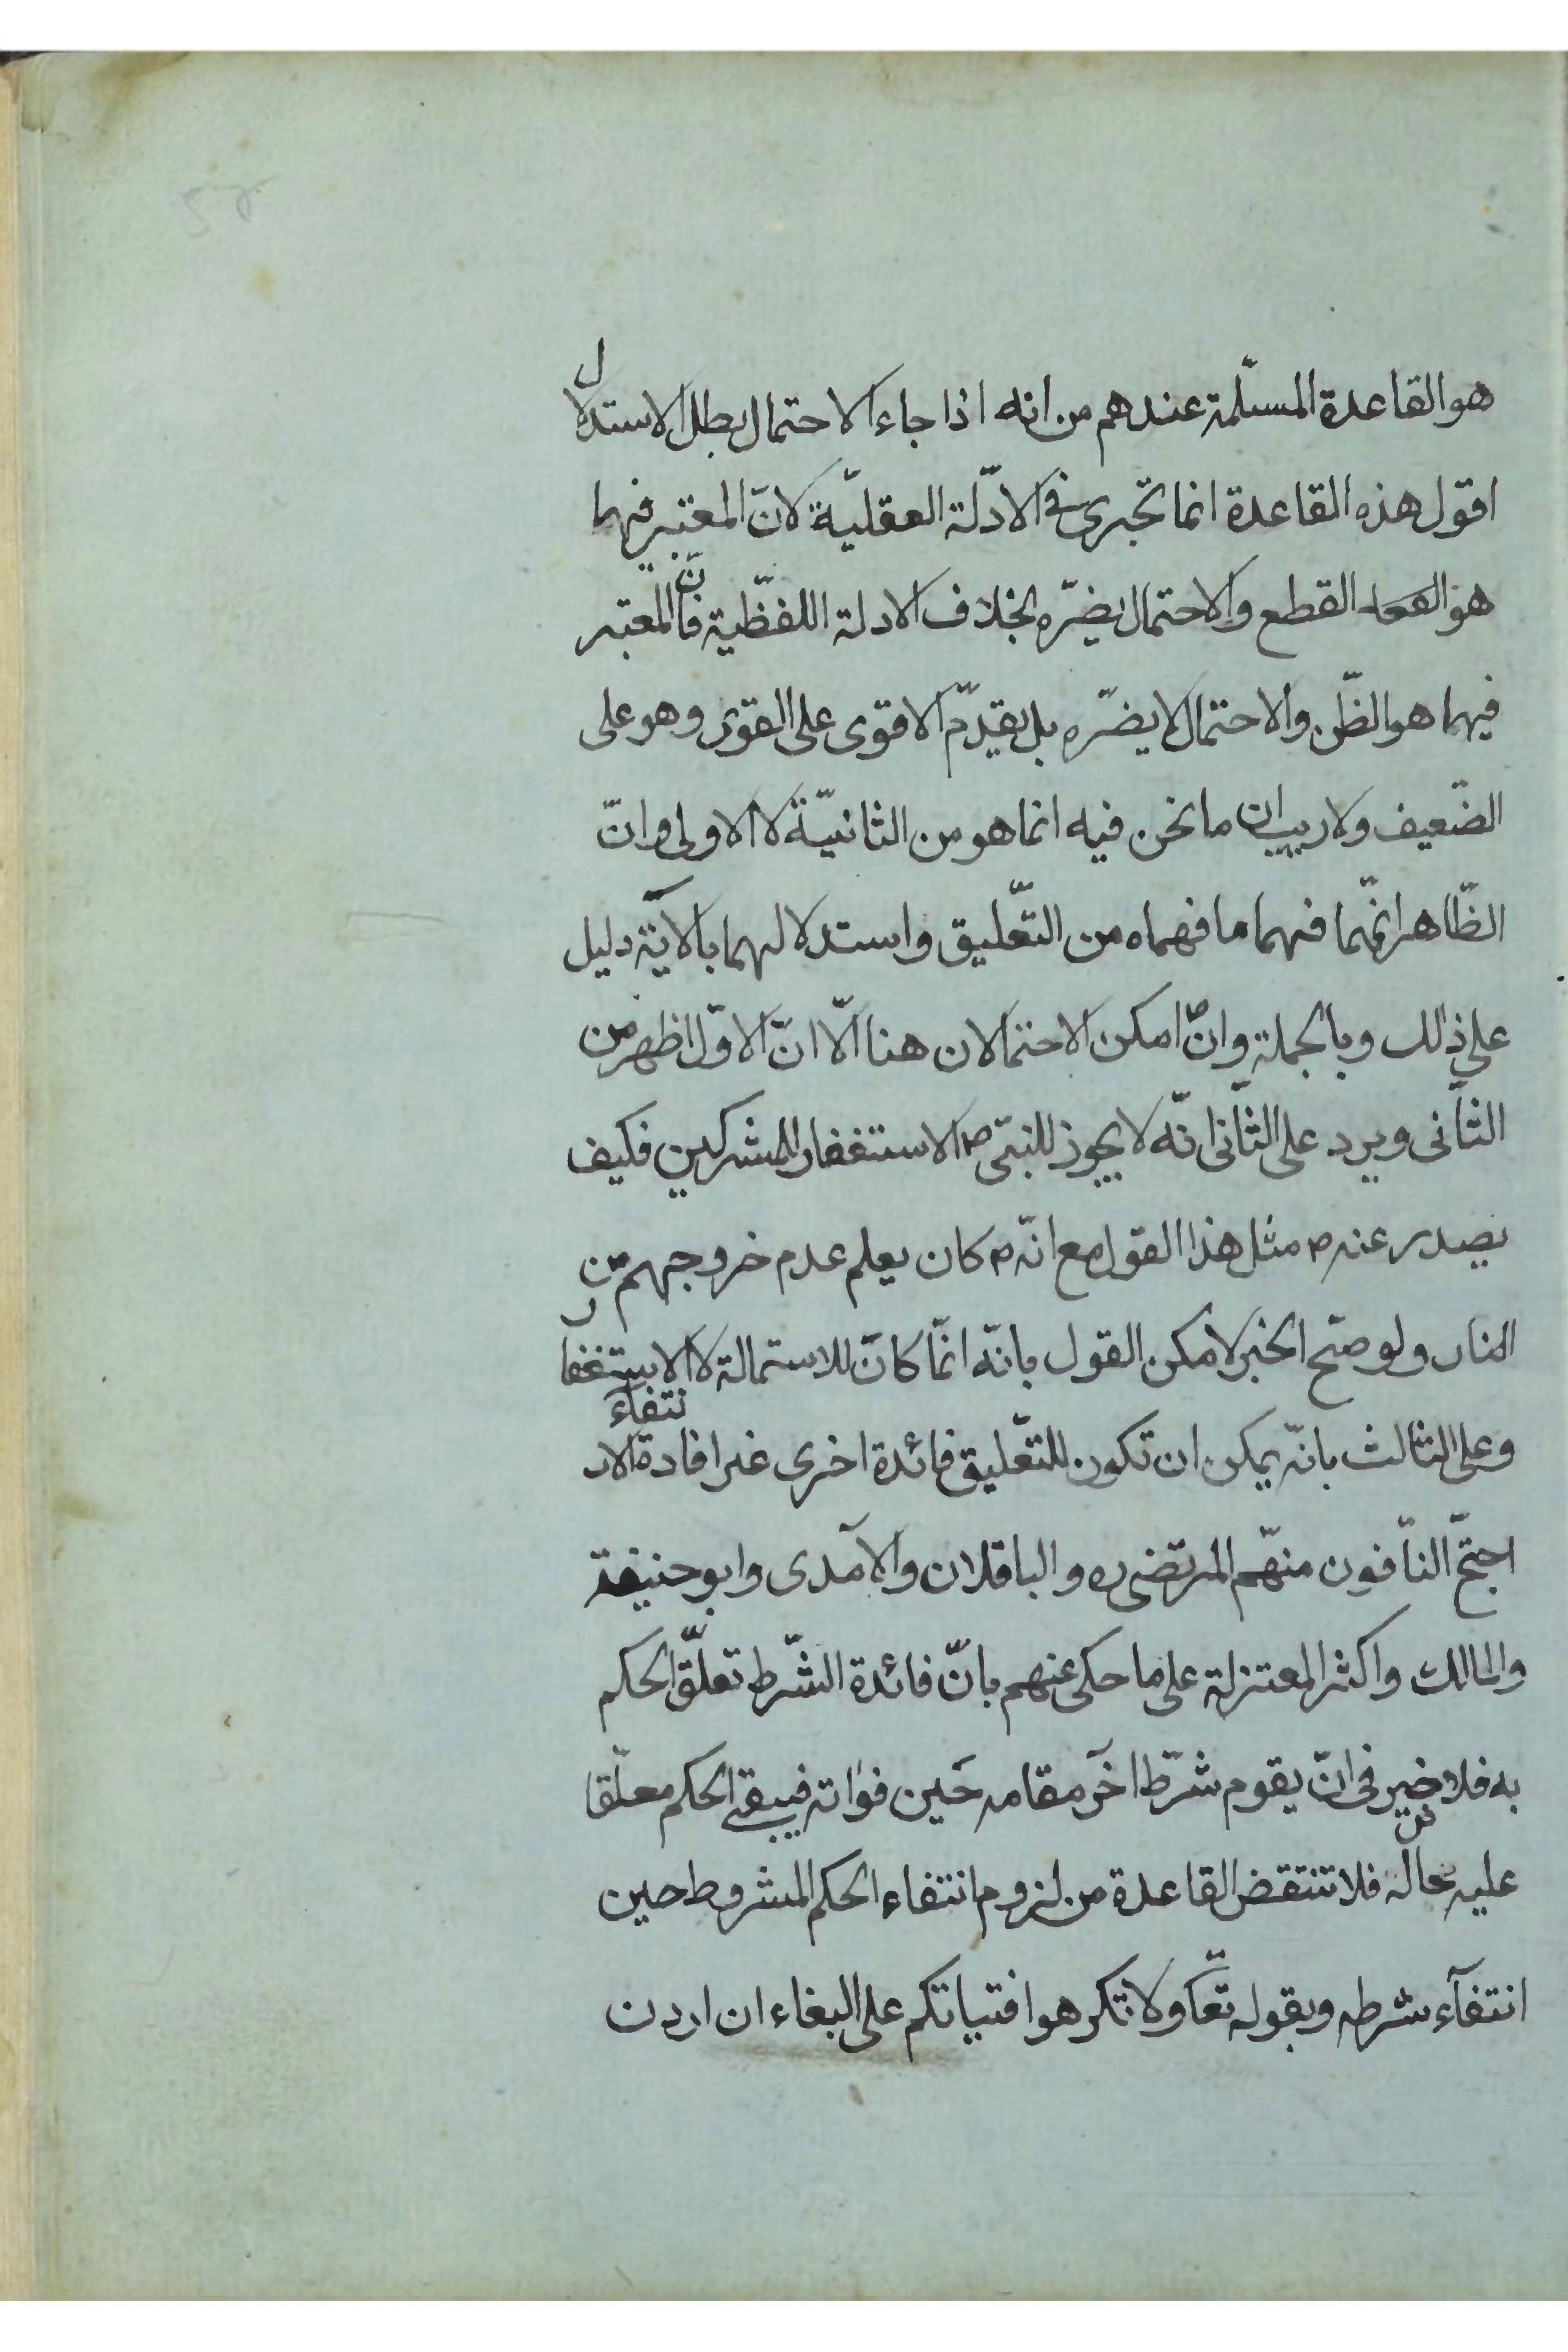 هو القاعدة المسلّمة عندهم من انه اذا جاء الاحتمال بطل الاستدلال
اقول هذه القاعدة انما تجرى فى الادّلة العقليّة لانّ المعتبر فيها
هو القطع والاحتمال يضرّه بخلاف الادلة اللفظّية فانّ المعتبر
فيها هو الظّن والاحتمال لا يضرّه بل يقدّم الاقوى على القوى وهو على
الضّعيف ولا ريب ان ما نحن فيه انما هو من الثانيّة لا الاولى وانّ
الظّاهر انّهما فهما ما فهماه من التّعليق واستدلالهما بالآيّة دليل
على ذلك وبالجملة وان امكن الاحتمالان هنا الّا انّ الاوّل اظهر من
الثّانى ويرد على الثّانى انّه لا يجوز للنبّى ص الاستغفار للمشركين فكيف
يصدر عنه ص مثل هذا القول مع انّه ص كان يعلم عدم خروجهم من
النار ولو صّح الخبر لامكن القول بانّه انّما كان للاستمالة لا الاستغفار
وعلى الثالث بانّه يمكن ان تكون للتّعليق فائدة اخرى غير افادة الانتفآء
احتجّ النّافون منهّم المرتضى ره والباقلان والآمدى وابو حنيفة
والمالك واكثر المعتزلة على ما حكى عنهم بانّ فائدة الشّرط تعلّق الحكم
به فلا ضير فى انّ يقوم شرّط اخر مقامه حين فواته فيبقى الحكم معلّقا
عليه بحاله فلا تنتقض القاعدة من لزوم انتفاء الحكم المشروط حين
انتفآء شرطه وبقوله تعّا ولا تكرهوا فتياتكم على البغاء ان اردن